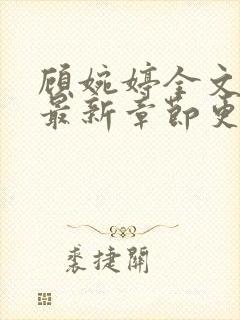 顾婉婷全文
最新章节更
裘捷開